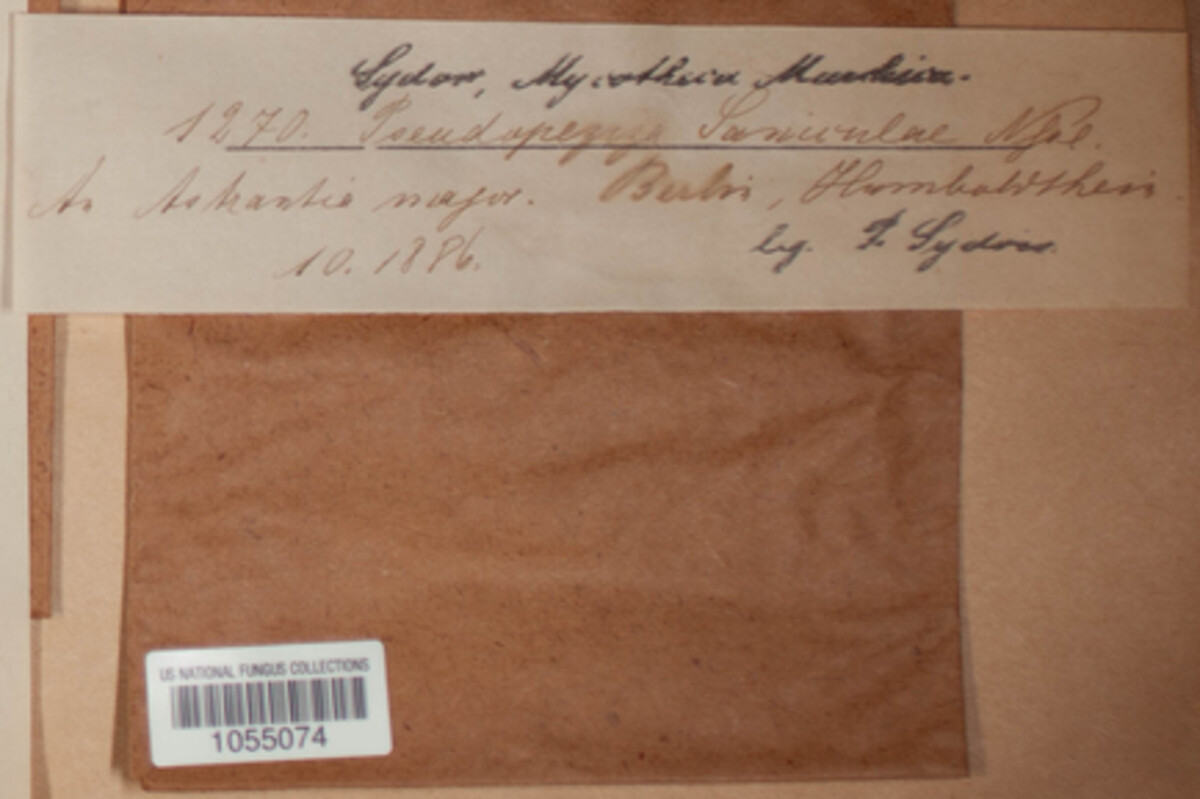 Sydow, Mycotheca Marchica.
1270. Pseudopeziza Saniculae Nssl.
An Astrantia major. Berlin, Humboldthain.
10. 1886.
leg. P. Sydow.
US NATIONAL FUNGUS COLLECTIONS
1055074